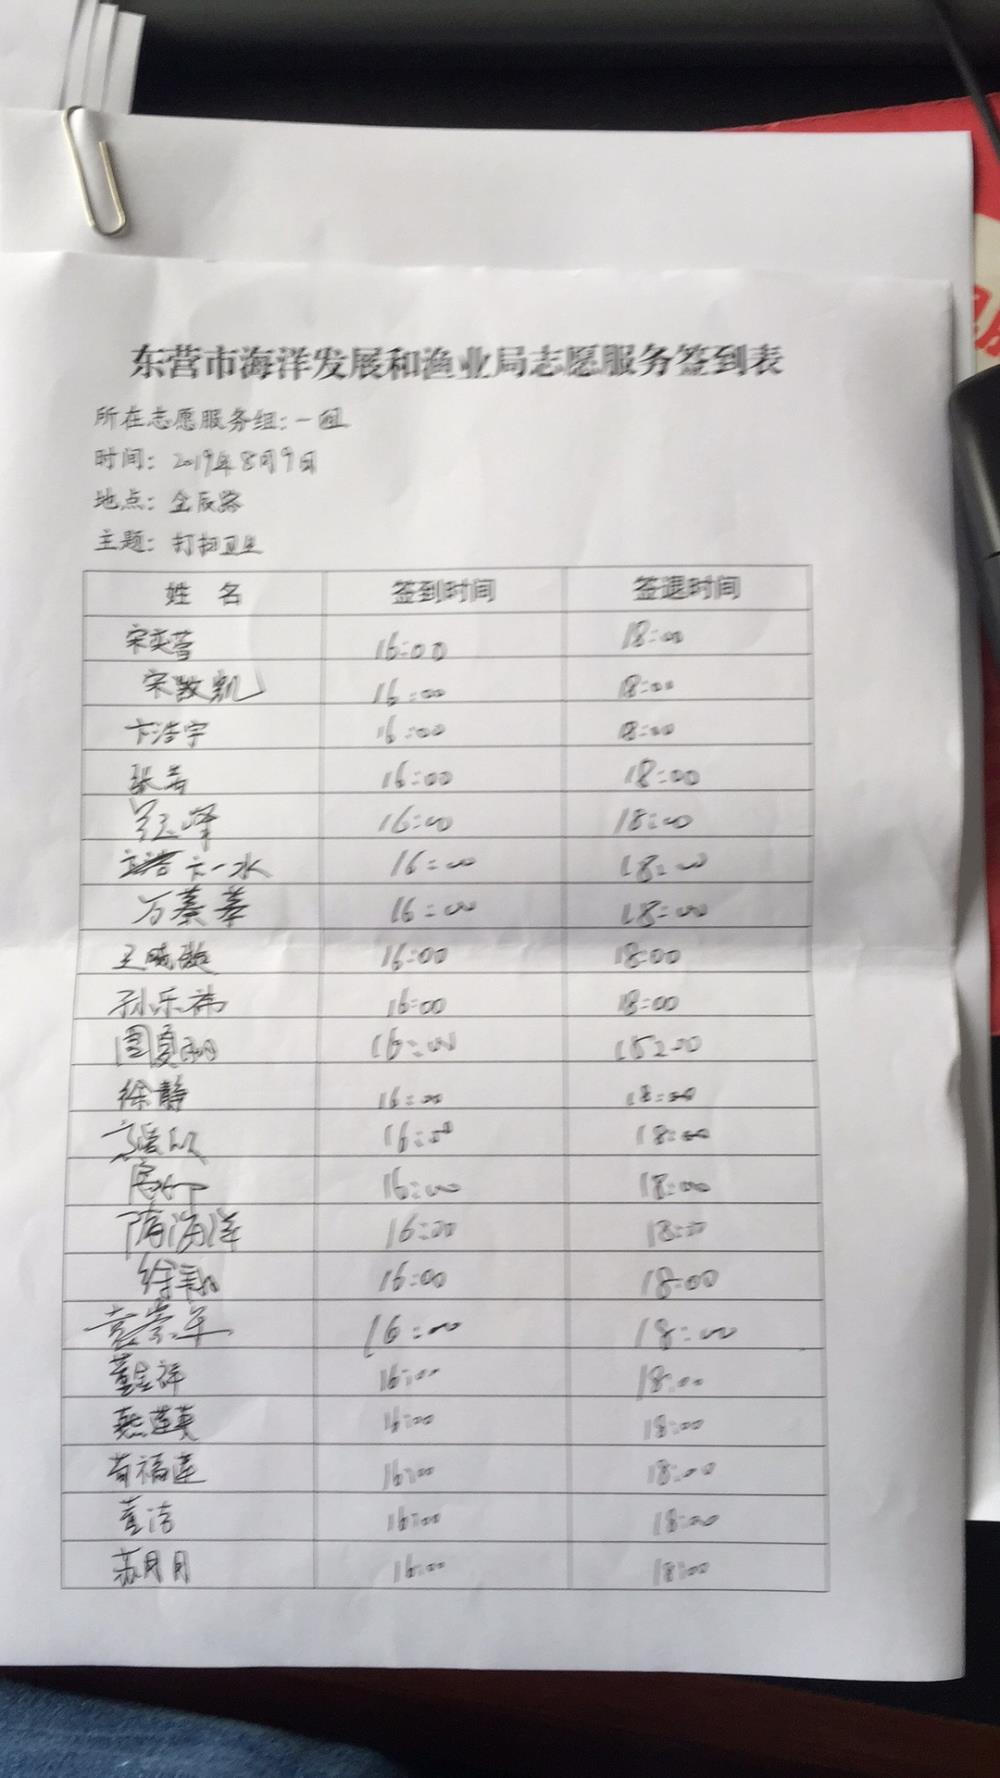 东营市海洋发展和渔业局志愿服务签到表
所在志愿服务组：一组
时间：2019年8月9日
地点：金辰路
主题：打扫卫生
姓 名 签到时间 签退时间
宋奕莹 16:00 18:00
宋敬凯 16:00 18:00
卞浩宇 16:00 18:00
张若 16:00 18:00
峰 16:00 18:00
卞一水 16:00 18:00
万蓁蓁 16:00 18:00
王晓璇 16:00 18:00
孙乐祎 16:00 18:00
周夏 16:00
徐静 16:00 18:00
16:00 18:00
16:00 18:00
隋海洋 16:00 18:00
徐翔 16:00 18:00
袁崇军 16:00 18:00
董金祥 16:00 18:00
燕莲英 16:00 18:00
苟福莲 16:00 18:00
董洁 16:00 18:00
苏月月 16:00 18:00